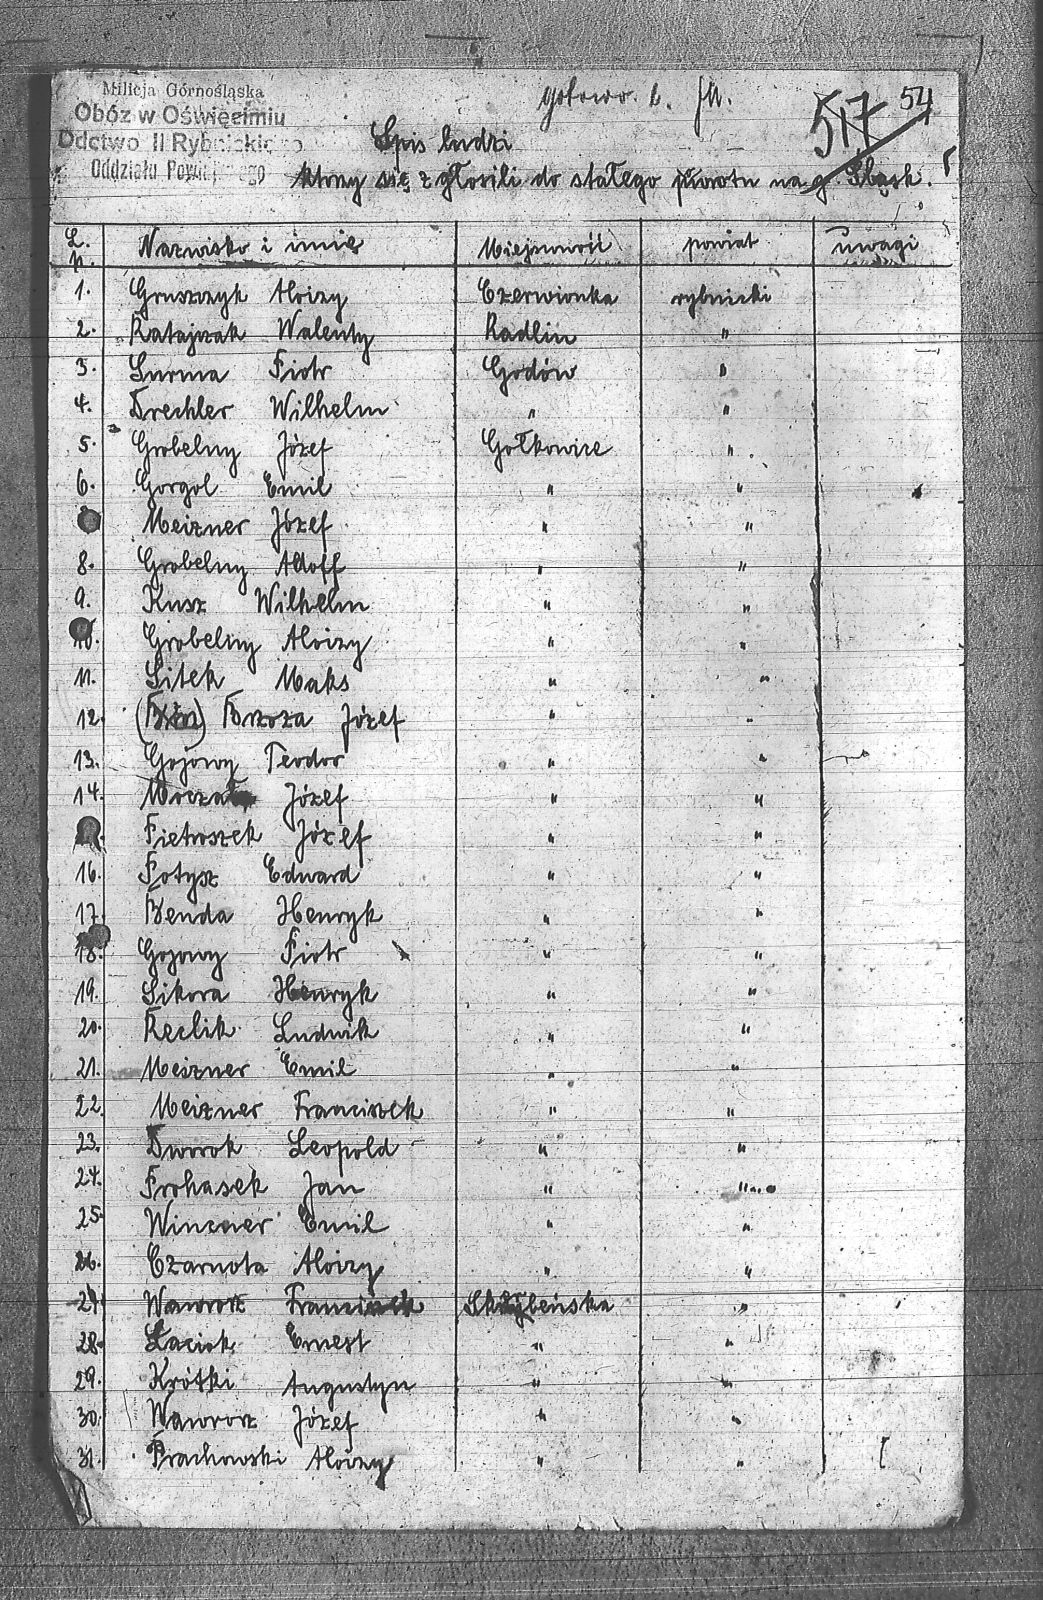 Milicja Górnośląska
Obóz w Oświęcimiu
Odctwo II Rybnickiego
Oddziału
gotowo. b.
517 54
Spis ludzi
ktorzy się zgłosili do stałego powrotu na g. Śląsk.
L. n. Nazwisko i imię Miejscowość powiat uwagi
1. Gruszczyk Aloizy Czerwionka rybnicki
2. Ratajczak Walenty Radlin "
3. Surma Piotr Godów "
4. Drechler Wilhelm " "
5. Grobelny Józef Gołkowice "
6. Gorgol Emil " "
Meizner Józef " "
8. Grobelny Adolf " "
9. Kusz Wilhelm " "
10. Grobelny Aloizy " "
11. Sitek Maks " "
12. Brzoza Józef " "
13. Gojowy Teodor " "
14. Józef " "
Pietroszek Józef " "
16. Fotysz Edward " "
17. Benda Henryk " "
18. Gojowy Piotr " "
19. Sikora Henryk " "
20. Reclik Ludwik " "
21. Meszner Emil " "
22. Meizner Franciszek " "
23. Dworok Leopold " "
24. Prohasek Jan " "
25. Emil " "
26. Czarnota Aloizy " "
27. Wawrosz Franciszek Skrzybeńska "
28. Łaciok Ernest " "
29. Krótki Augustyn " "
30. Wawrosz Józef " "
31. Prachowski Aloizy " "